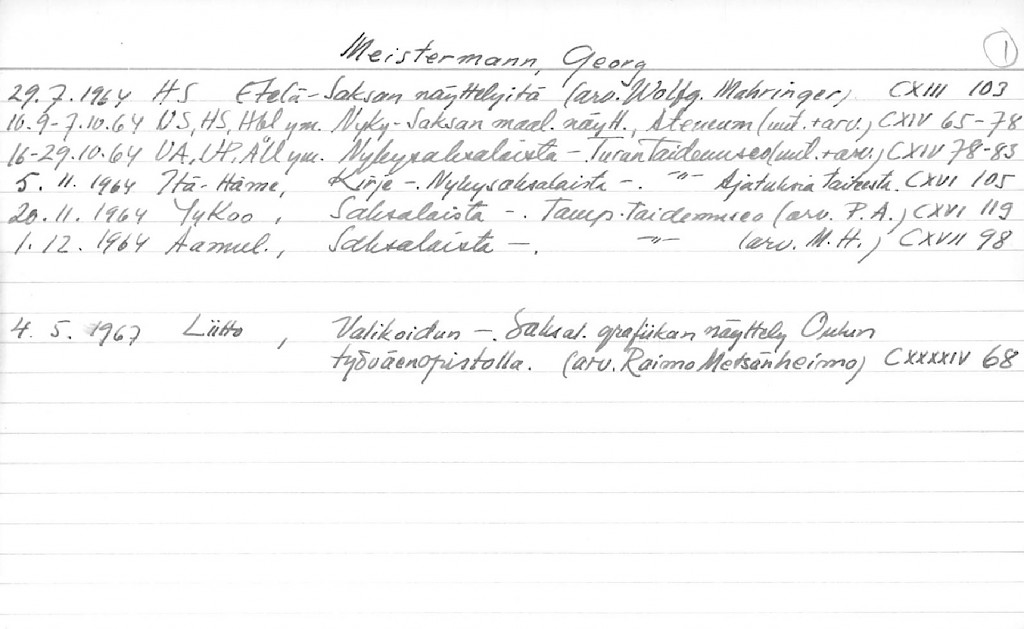 Meistermann, Georg 1
29.7.1964 HS Etelä-Saksan näyttelyitä (arv. Wolfg. Mahringer) CXIII 103
10.9-7.10.64 US, HS, Hbl ym. Nyky-Saksan maal. näytt., Ateneum (uut.+arv.) CXIV 65-78
16-29.10.64 UA, UP, ÅU ym. Nykysaksalaista -. Turun Taidemuseo (uut.+arv.) CXIV 78-83
5. 11. 1964 Itä-Häme, Kirje -. Nykysaksalaista -. -"- Ajatuksia taiteesta. CXVI 105
20. 11. 1964 JyKoo, Saksalaista -. Tamp. Taidemuseo (arv. P.A.) CXVI 119
1. 12. 1964 Aamul., Saksalaista -. -"- (arv. M.H.) CXVII 98
4. 5. 1967 Liitto, Valikoidun -. Saksal. grafiikan näyttely Oulun
työväenopistolla. (arv. Raimo Metsänheimo) CXXXXIV 68